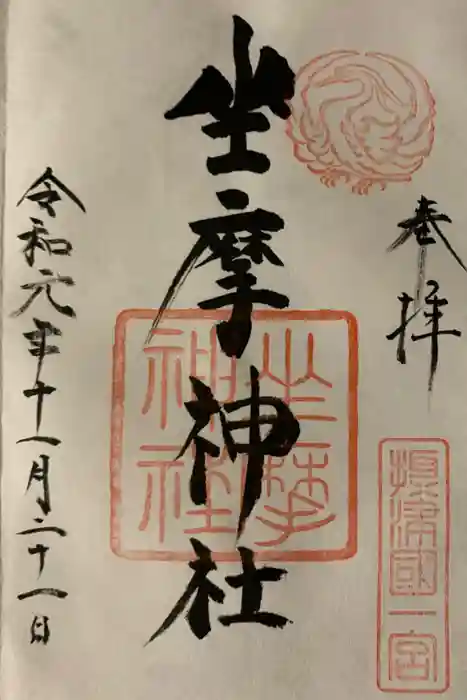 奉拝
摂津國一宮
坐摩神社
坐摩
神社
令和元年十一月二十一日